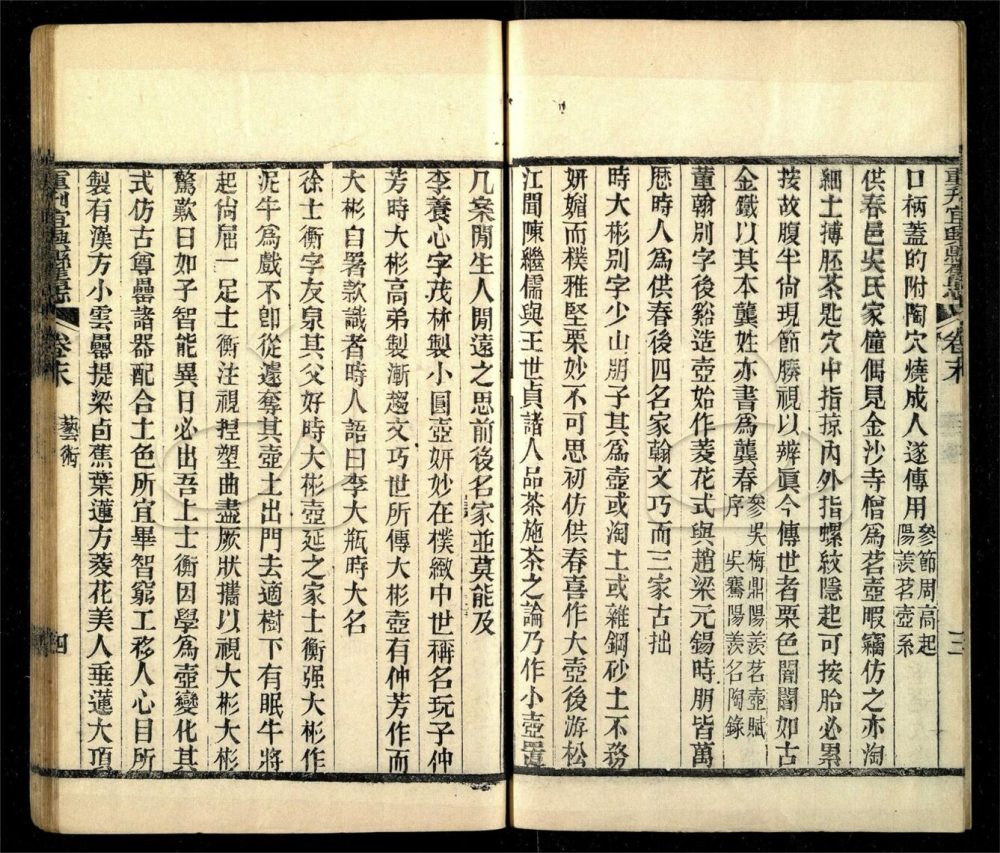 重刊宜興縣舊志
卷末
三
口柄蓋的附陶穴燒成人遂傳用參節周高起
陽羨茗壺系
供春邑吳氏家僮偶見金沙寺僧爲茗壺暇竊仿之亦淘
細土摶胚茶匙穴中指掠內外指螺紋隱起可按胎必累
按故腹半尙現節腠視以辨眞今傳世者栗色闇闇如古
金鐵以其本龔姓亦書爲龔春參吳梅鼎陽羨茗壺賦
序 吳騫陽羨名陶錄
董翰別字後谿造壺始作菱花式與趙梁元錫時朋皆萬
厯時人爲供春後四名家翰文巧而三家古拙
時大彬別字少山朋子其爲壺或淘土或雜鋼砂土不務
妍媚而樸雅堅栗妙不可思初仿供春喜作大壺後游松
江聞陳繼儒與王世貞諸人品茶施茶之論乃作小壺置
几案閒生人閒遠之思前後名家並莫能及
李養心字茂林製小圓壺妍妙在樸緻中世稱名玩子仲
芳時大彬高弟製漸趨文巧世所傳大彬壺有仲芳作而
大彬自署款識者時人語曰李大瓶時大名
徐士衡字友泉其父好時大彬壺延之家士衡强大彬作
泥牛爲戲不卽從遽奪其壺土出門去適樹下有眠牛將
起尙屈一足士衡注視捏塑曲盡厥狀攜以視大彬大彬
驚歎曰如子智能異日必出吾上士衡因學爲壺變化其
式仿古尊罍諸器配合土色所宜畢智窮工移人心目所
製有漢方小雲罍提梁卣蕉葉蓮方菱花美人垂蓮大頂
重刊宜興縣舊志
卷末
藝術
四